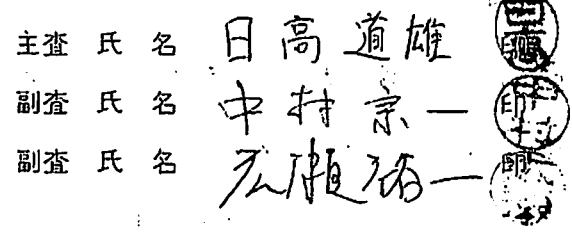 主査 氏 名 日高道雄 印
副査 氏 名 中村宗一 印
副査 氏 名 広瀬裕一 印